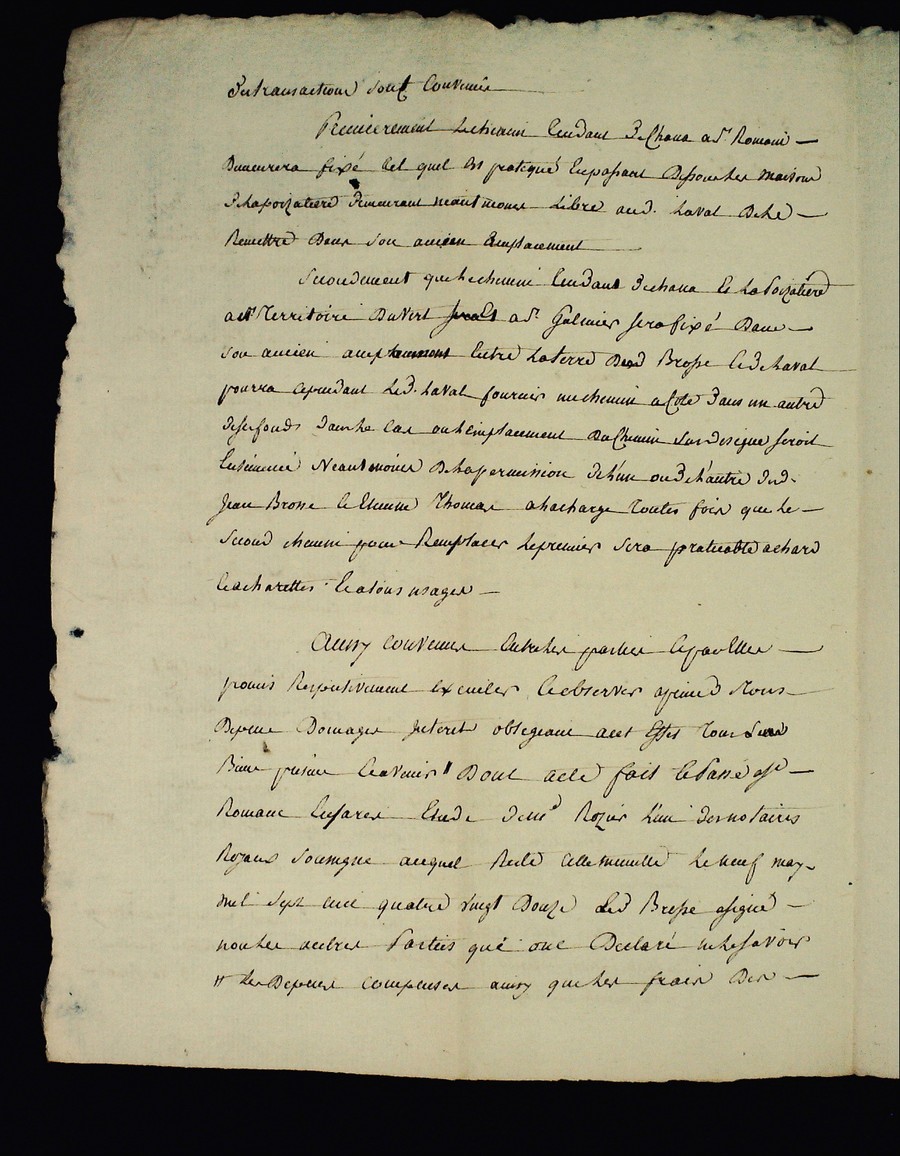 De transaction sont Convenu
Premierement Le chemin tendant De Chana a St. Romain
Demeurera fixé tel quel Est pratiqué En passant Dessous les maisons
De la poizatiere Demeurant neantmoins Libre aud. Laval De le
Remettre Dans son ancien Emplacement
Secondement que le chemin tendant De chana Et La Poizatiere
au Territoire Du Vert a St. Galmier sera fixé Dans
son ancien amplasement Entre La terre Dud Brosse Et de Laval
pourra cependant Led. Laval fournir un chemin a Coté Dans un autre
De ses fonds Dans le Cas ou l'emplacement Du Chemin Sus designe seroit
Neantmoins De la permission De l'un ou De l'autre Desd.
Jean Brosse Et Etienne Thomas a la charge Toutes fois que le
Second chemin pour Remplacer Le premier sera praticable a chard
Et a charettes Et a tous usages
Ainsy Convenus Entre les parties Et par Elles
promis Respectivement Executer Et observer a peine De Tous
Depens Domages Interets obligeant a cet Effet Tous Leurs
Biens presens Et avenir Dont acte fait Et Passé a St
Romain Les Farges Etude De me Rozier L'un Des notaires
Royaux Soussigne auquel Reste Cette minutte Le neuf may
mil sept cent quatre vingt Douze Led Brosse a signé
non les autres Parties qui ont Declaré ne le savoir
Les Depens compensés ainsy que les frais Des